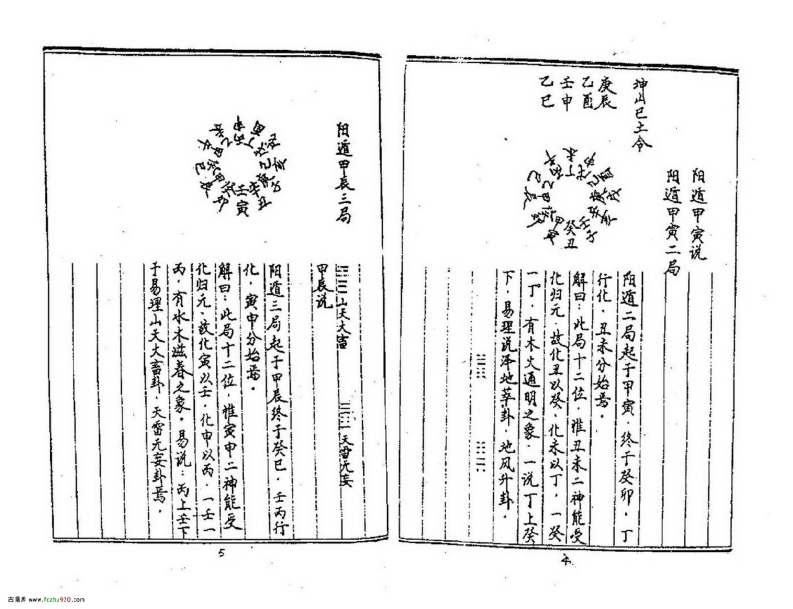 坤山巳土令
庚辰
乙酉
壬申
乙巳
阳遁甲寅说
阳遁甲寅二局
癸丑
壬子
阳遁二局起于甲寅，终于癸卯，丁
行化，丑未分始焉。
解曰：此局十二位，惟丑未二神能受
化归元，故化丑以癸，化未以丁，一癸
一丁，有木火通明之象，一说丁上癸
下，易理说泽地萃卦，地风升卦。
4
阳遁甲辰三局
壬寅
山天大畜
天雷无妄
甲辰说
阳遁三局起于甲辰终于癸巳，壬丙行
化，寅申分始焉。
解曰：此局十二位，惟寅申二神能受
化归元，故化寅以壬，化申以丙，一壬一
丙，有水木滋春之象，易说：丙上壬下
于易理山天大畜卦，天雷无妄卦焉。
5
www.fczhu920.com